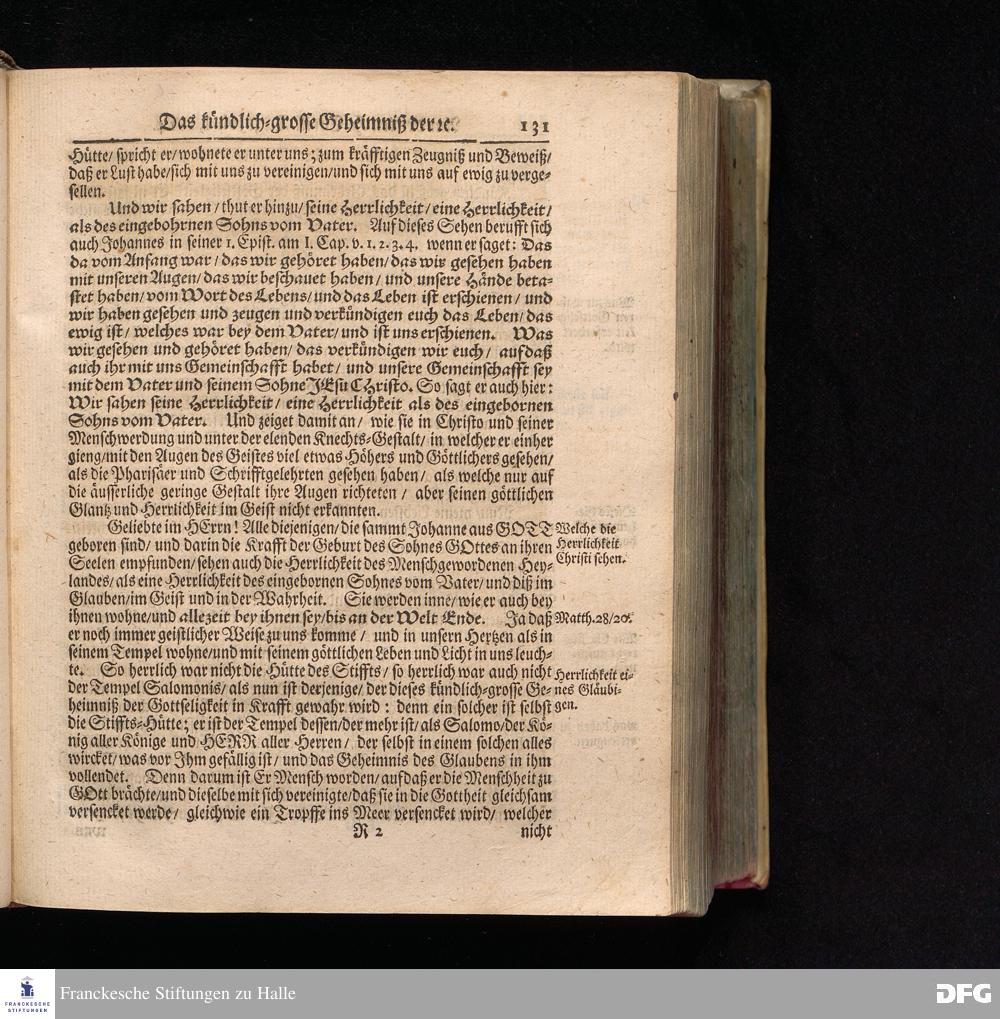 Das kündlich-grosse Geheimniß der ꝛc. 131
Hütte/ spricht er/ wohnete er unter uns; zum kräfftigen Zeugniß und Beweiß/
daß er Lust habe/ sich mit uns zu vereinigen/ und sich mit uns auf ewig zu verge-
sellen.
Und wir sahen/ thut er hinzu/ seine Herrlichkeit/ eine Herrlichkeit/
als des eingebohrnen Sohns vom Vater. Auf dieses Sehen berufft sich
auch Johannes in seiner 1. Epist. am I. Cap. v. 1. 2. 3. 4. wenn er saget: Das
da vom Anfang war/ das wir gehöret haben/ das wir gesehen haben
mit unseren Augen/ das wir beschauet haben/ und unsere Hände beta-
stet haben/ vom Wort des Lebens/ und das Leben ist erschienen/ und
wir haben gesehen und zeugen und verkündigen euch das Leben/ das
ewig ist/ welches war bey dem Vater/ und ist uns erschienen. Was
wir gesehen und gehöret haben/ das verkündigen wir euch/ auf daß
auch ihr mit uns Gemeinschafft habet/ und unsere Gemeinschafft sey
mit dem Vater und seinem Sohne JEsu CHristo. So sagt er auch hier:
Wir sahen seine Herrlichkeit/ eine Herrlichkeit als des eingebornen
Sohns vom Vater. Und zeiget damit an/ wie sie in Christo und seiner
Menschwerdung und unter der elenden Knechts-Gestalt/ in welcher er einher
gieng/ mit den Augen des Geistes viel etwas Höhers und Göttlichers gesehen/
als die Pharisäer und Schrifftgelehrten gesehen haben/ als welche nur auf
die äusserliche geringe Gestalt ihre Augen richteten/ aber seinen göttlichen
Glantz und Herrlichkeit im Geist nicht erkannten.
Geliebte im HErrn! Alle diejenigen/ die sammt Johanne aus GOTT
geboren sind/ und darin die Krafft der Geburt des Sohnes GOttes an ihren
Seelen empfunden/ sehen auch die Herrlichkeit des Menschgewordenen Hey-
landes/ als eine Herrlichkeit des eingebornen Sohnes vom Vater/ und diß im
Glauben/ im Geist und in der Wahrheit. Sie werden inne/ wie er auch bey
ihnen wohne/ und allezeit bey ihnen sey/ bis an der Welt Ende. Ja daß
er noch immer geistlicher Weise zu uns komme/ und in unsern Hertzen als in
seinem Tempel wohne/ und mit seinem göttlichen Leben und Licht in uns leuch-
te. So herrlich war nicht die Hütte des Stiffts/ so herrlich war auch nicht
der Tempel Salomonis/ als nun ist derjenige/ der dieses kündlich-grosse Ge-
heimniß der Gottseligkeit in Krafft gewahr wird: denn ein solcher ist selbst
die Stiffts-Hütte; er ist der Tempel dessen/ der mehr ist/ als Salomo/ der Kö-
nig aller Könige und HERR aller Herren/ der selbst in einem solchen alles
wircket/ was vor Ihm gefällig ist/ und das Geheimnis des Glaubens in ihm
vollendet. Denn darum ist Er Mensch worden/ auf daß er die Menschheit zu
GOtt brächte/ und dieselbe mit sich vereinigte/ daß sie in die Gottheit gleichsam
versencket werde/ gleichwie ein Tropffe ins Meer versencket wird/ welcher
R 2 nicht
Welche die
Herrlichkeit
Christi sehen.
Matth. 28/20.
Herrlichkeit ei-
nes Gläubi-
gen.
FRANCKESCHE
STIFTUNGEN
Franckesche Stiftungen zu Halle
DFG